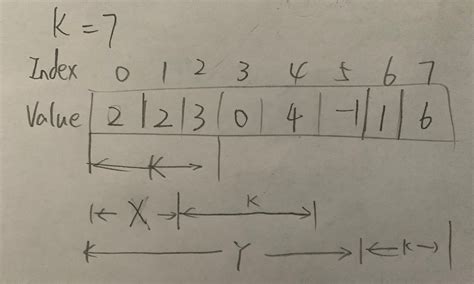 K = 7
Index 0 1 2 3 4 5 6 7
Value 2 2 3 0 4 -1 1 6
K
X K
Y K